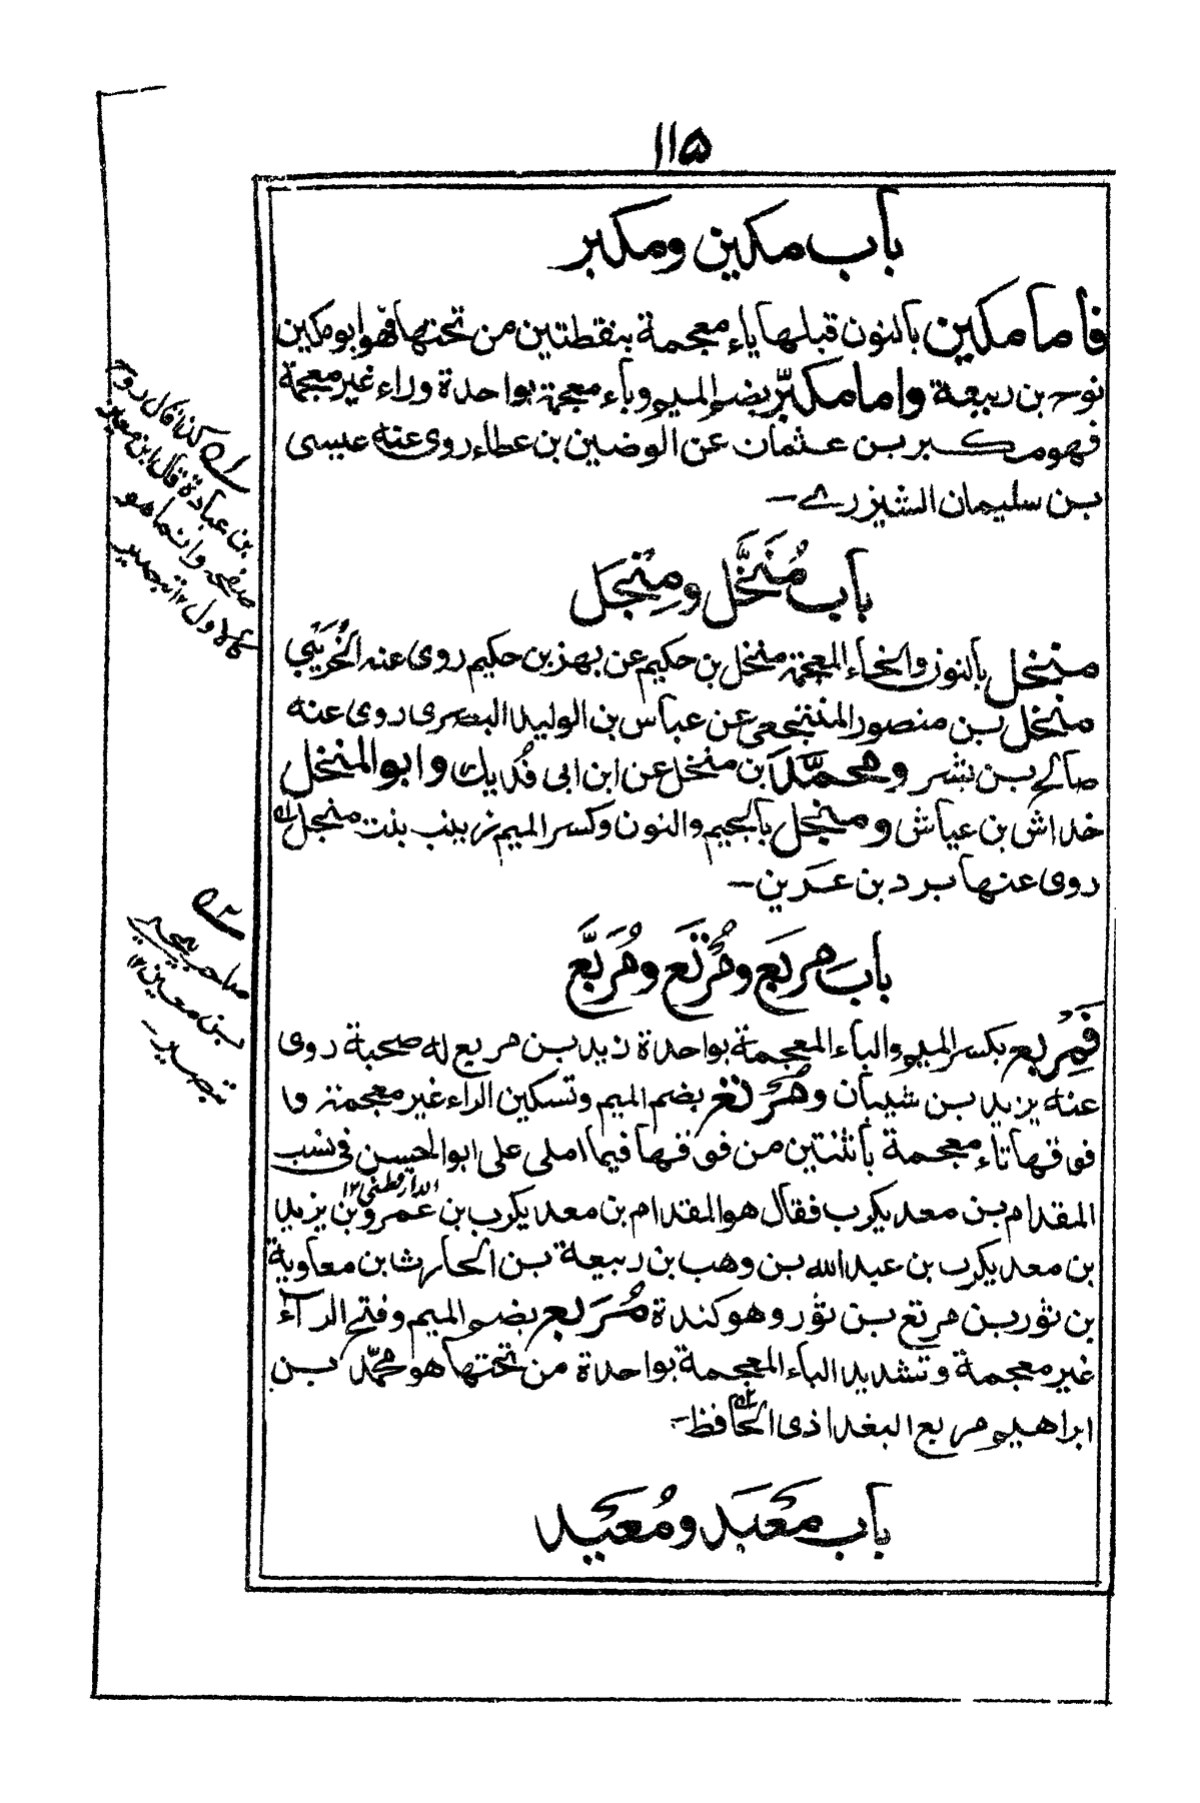 ١١٥
باب مكين ومكبر
فاما مكين بالنون قبلها ياء معجمة بنقطتين من تحتها فهو ابو مكين
نوح بن ربيعة واما مكبّر بضم الميم وباء معجمة بواحدة وراء غير معجمة
فهو مكبر بن عثمان عن الوضين بن عطاء روى عنه عيسى
بن سليمان الشيزرى
باب مُنَخَّل ومِنْجَل
منخل بالنون والخاء المعجمة منخل بن حكيم عن بهز بن حكيم روى عنه الخُرَيْبي
منخل بن منصور المنتجعي عن عباس بن الوليد البصرى روى عنه
صالح بن بشر ومحمَّد بن منخل عن ابن ابى فُديك وابو المنخل
خداش بن عياش ومنجل بالجيم والنون وكسر الميم زينب بنت منجل ١ه
روى عنها برد بن عرين
باب مربع ومُرْتَع ومُرَبَّع
فَمِرْبع بكسر الميم والباء المعجمة بواحدة زيد بن مربع له صحبة روى
عنه يزيد بن شيبان ومُرْتع بضم الميم وتسكين الراء غير معجمة وا
فوقها تاء معجمة باثنتين من فوقها فيما املى على ابو الحسن فى نسب
الدارقطنى ١٢
المقدام بن معد يكرب فقال هو المقدام بن معد يكرب بن عمرو بن يزيد
بن معد يكرب بن عبد الله بن وهب بن ربيعة بن الحارث ابن معاوية
بن ثور بن مرتع بن ثور وهو كندة مُرَبع بضم الميم وفتح الرآء
غير معجمة وتشديد الباء المعجمة بواحدة من تحتها هو محمّد بن
ابراهيم مربع البغداذى الحافظ ٢ه
باب مَعْبَد ومُعَيْد
١ه كذا قال روح
بن عبادة قال ابن معين
صحفه وانما هو
كالاول ١٢ تبصير
٢ه
صاحب يحيى
بن معين ١٢
تبصير